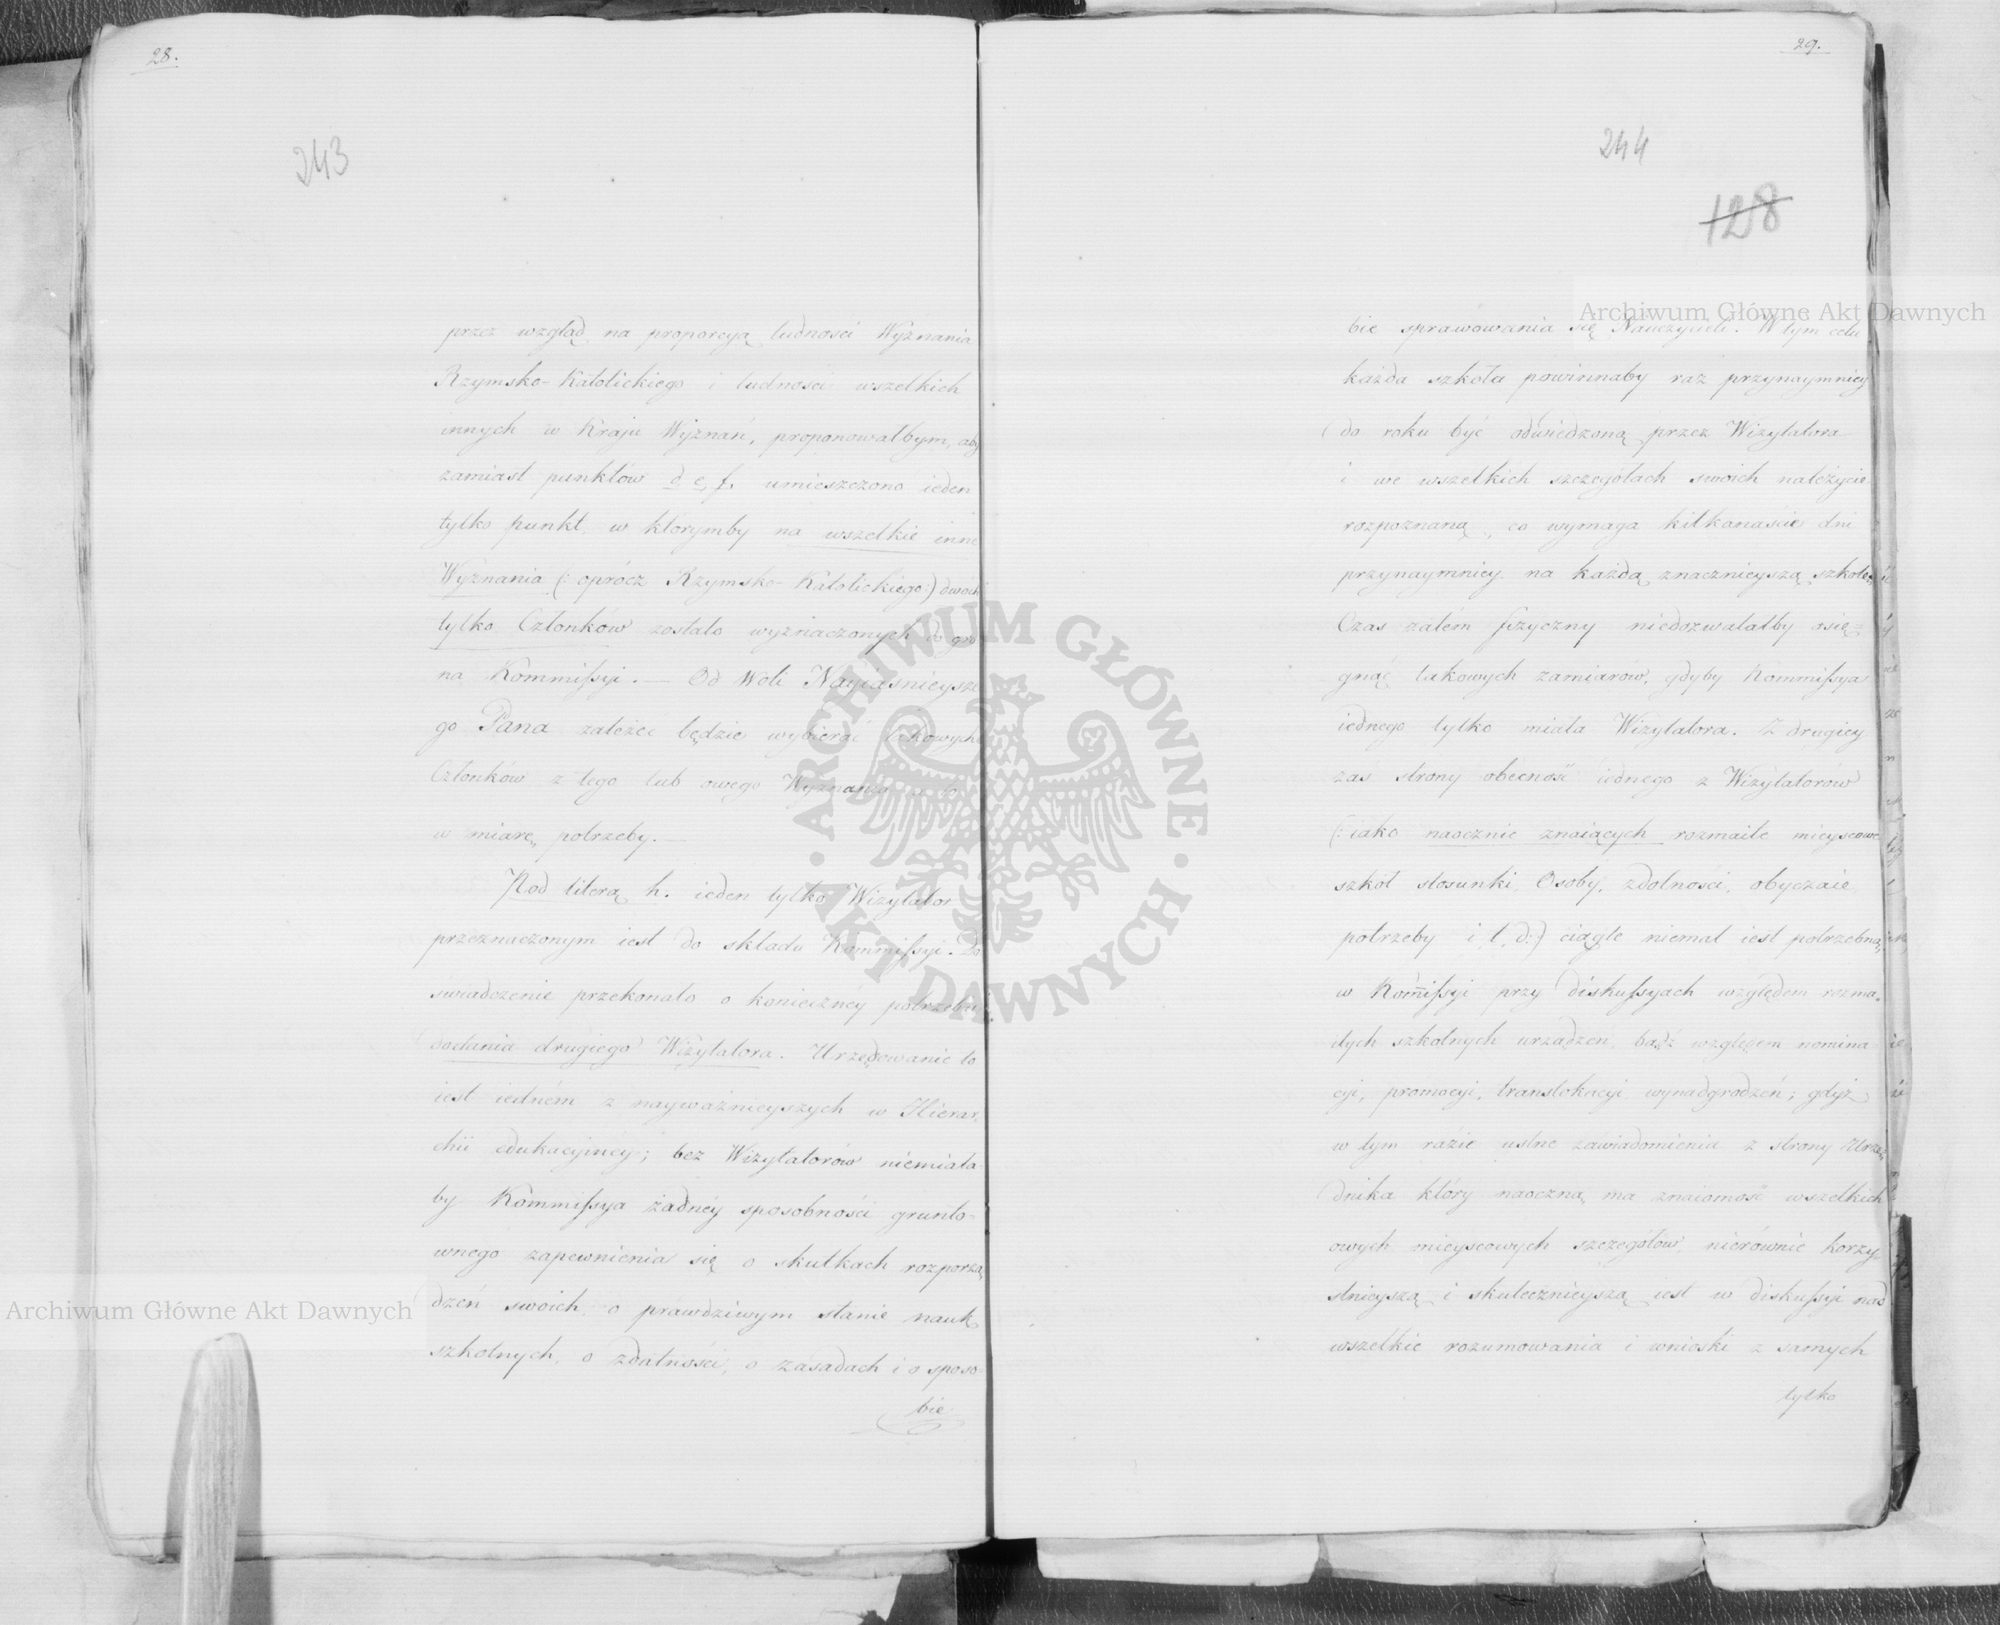 28.
243
przez wzgląd na proporcyą ludnosci Wyznania
Rzymsko-Katolickiego i ludnosci wszelkich
innych w Kraju Wyznań, proponowałbym, aby
zamiast punktów d, e, f, umieszczono ieden
tylko punkt, w którymby na wszelkie inne
Wyznania (: oprócz Rzymsko-Katolickiego:) dwóch
tylko Członków zostało wyznaczonych do gro
na Kommissyi. — Od Woli Nayiasnieysze
go Pana zależeć będzie wybierać takowych
Członków z tego lub owego Wyznania
w miarę potrzeby. —
Pod literą h. ieden tylko Wizytator
przeznaczonym iest do składu Kommissyi. Do
swiadczenie przekonało o konieczney potrzebie
dodania drugiego Wizytatora. Urzędowanie to
iest iedném z nayważnieyszych w Hierar,
chii edukacyiney; bez Wizytatorów niemiała
by Kommissya żadnéy sposobności grunto-
wnego zapewnienia się o skutkach rozporzą
dzeń swoich, o prawdziwym stanie nauk
szkolnych, o zdatności, o zasadach i o sposo-
bie
29.
244
128
bie sprawowania się Nauczycieli. W tym celu
każda szkoła powinnaby raz przynaymniey
do roku być odwiedzoną przez Wizytatora
i we wszelkich szczegółach swoich należycie
rozpoznaną, co wymaga kilkanaście dni
przynaymniey na każdą znacznieyszą szkołę.
Czas zatém fizyczny niedozwalałby osię=
gnąć takowych zamiarów, gdyby Kommissya
iednego tylko miała Wizytatora. Z drugiey
zaś strony obecność iednego z Wizytatorów
(: iako naocznie znaiących rozmaite mieyscowe
szkół stosunki, Osoby, zdolnosci, obyczaie,
potrzeby i, t, d:) ciągle niemal iest potrzebną,
w Kom̄issyi przy diskussyach względem rozma,
itych szkolnych urządzeń, bądź względem nomina-
cyi, promocyi, translokacyi, wynadgrodzeń; gdyż
w tym razie ustne zawiadomienia z strony Urzę,
dnika który naoczną ma znaiomość wszelkich
owych mieyscowych szczegółów, nierównie korzy-
stnieyszą i skutecznieyszą iest w diskussyi nad
wszelkie rozumowania i wnioski z samych
tylko
Archiwum Główne Akt Dawnych
Archiwum Główne Akt Dawnych
ARCHIWUM GŁÓWNE AKT DAWNYCH